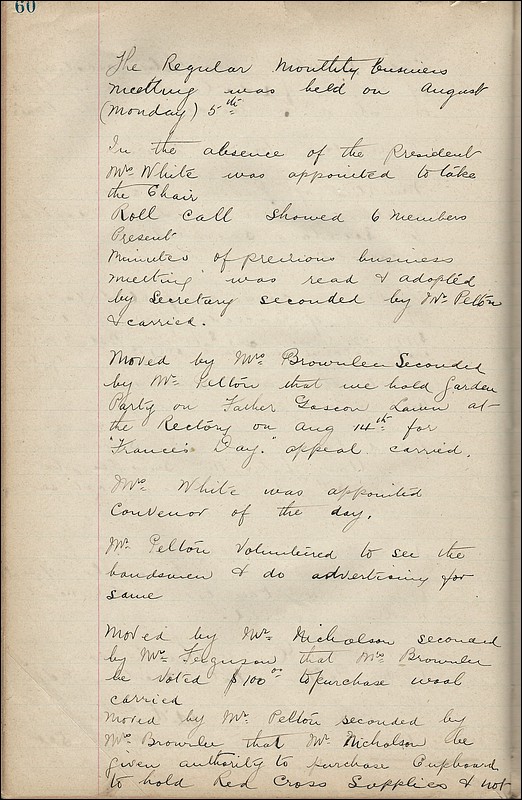 60
The Regular Monthly business
meeting was held on August
(Monday) 5th
In the absence of the President
Mrs White was appointed to take
the Chair
Roll call showed 6 members
Present
Minutes of previous business
meeting was read & adopted
by Secretary seconded by Mr Pelton
& carried.
Moved by Mrs Brownlee Seconded
by Mr Pelton that we hold garden
Party on Father Gascon Lawn at
the Rectory on Aug 14th for
"France's Day." appeal carried.
Mrs White was appointed
Convenor of the day.
Mr Pelton Volunteered to see the
bandsmen & do advertising for
same
Moved by Mr Nicholson seconded
by Mr Ferguson that Mrs Brownlee
be voted $100.00 to purchase wool
carried
Moved by Mr Pelton seconded by
Mrs Brownlee that Mr Nicholson be
given authority to purchase Cupboard
to hold Red Cross Supplies & not